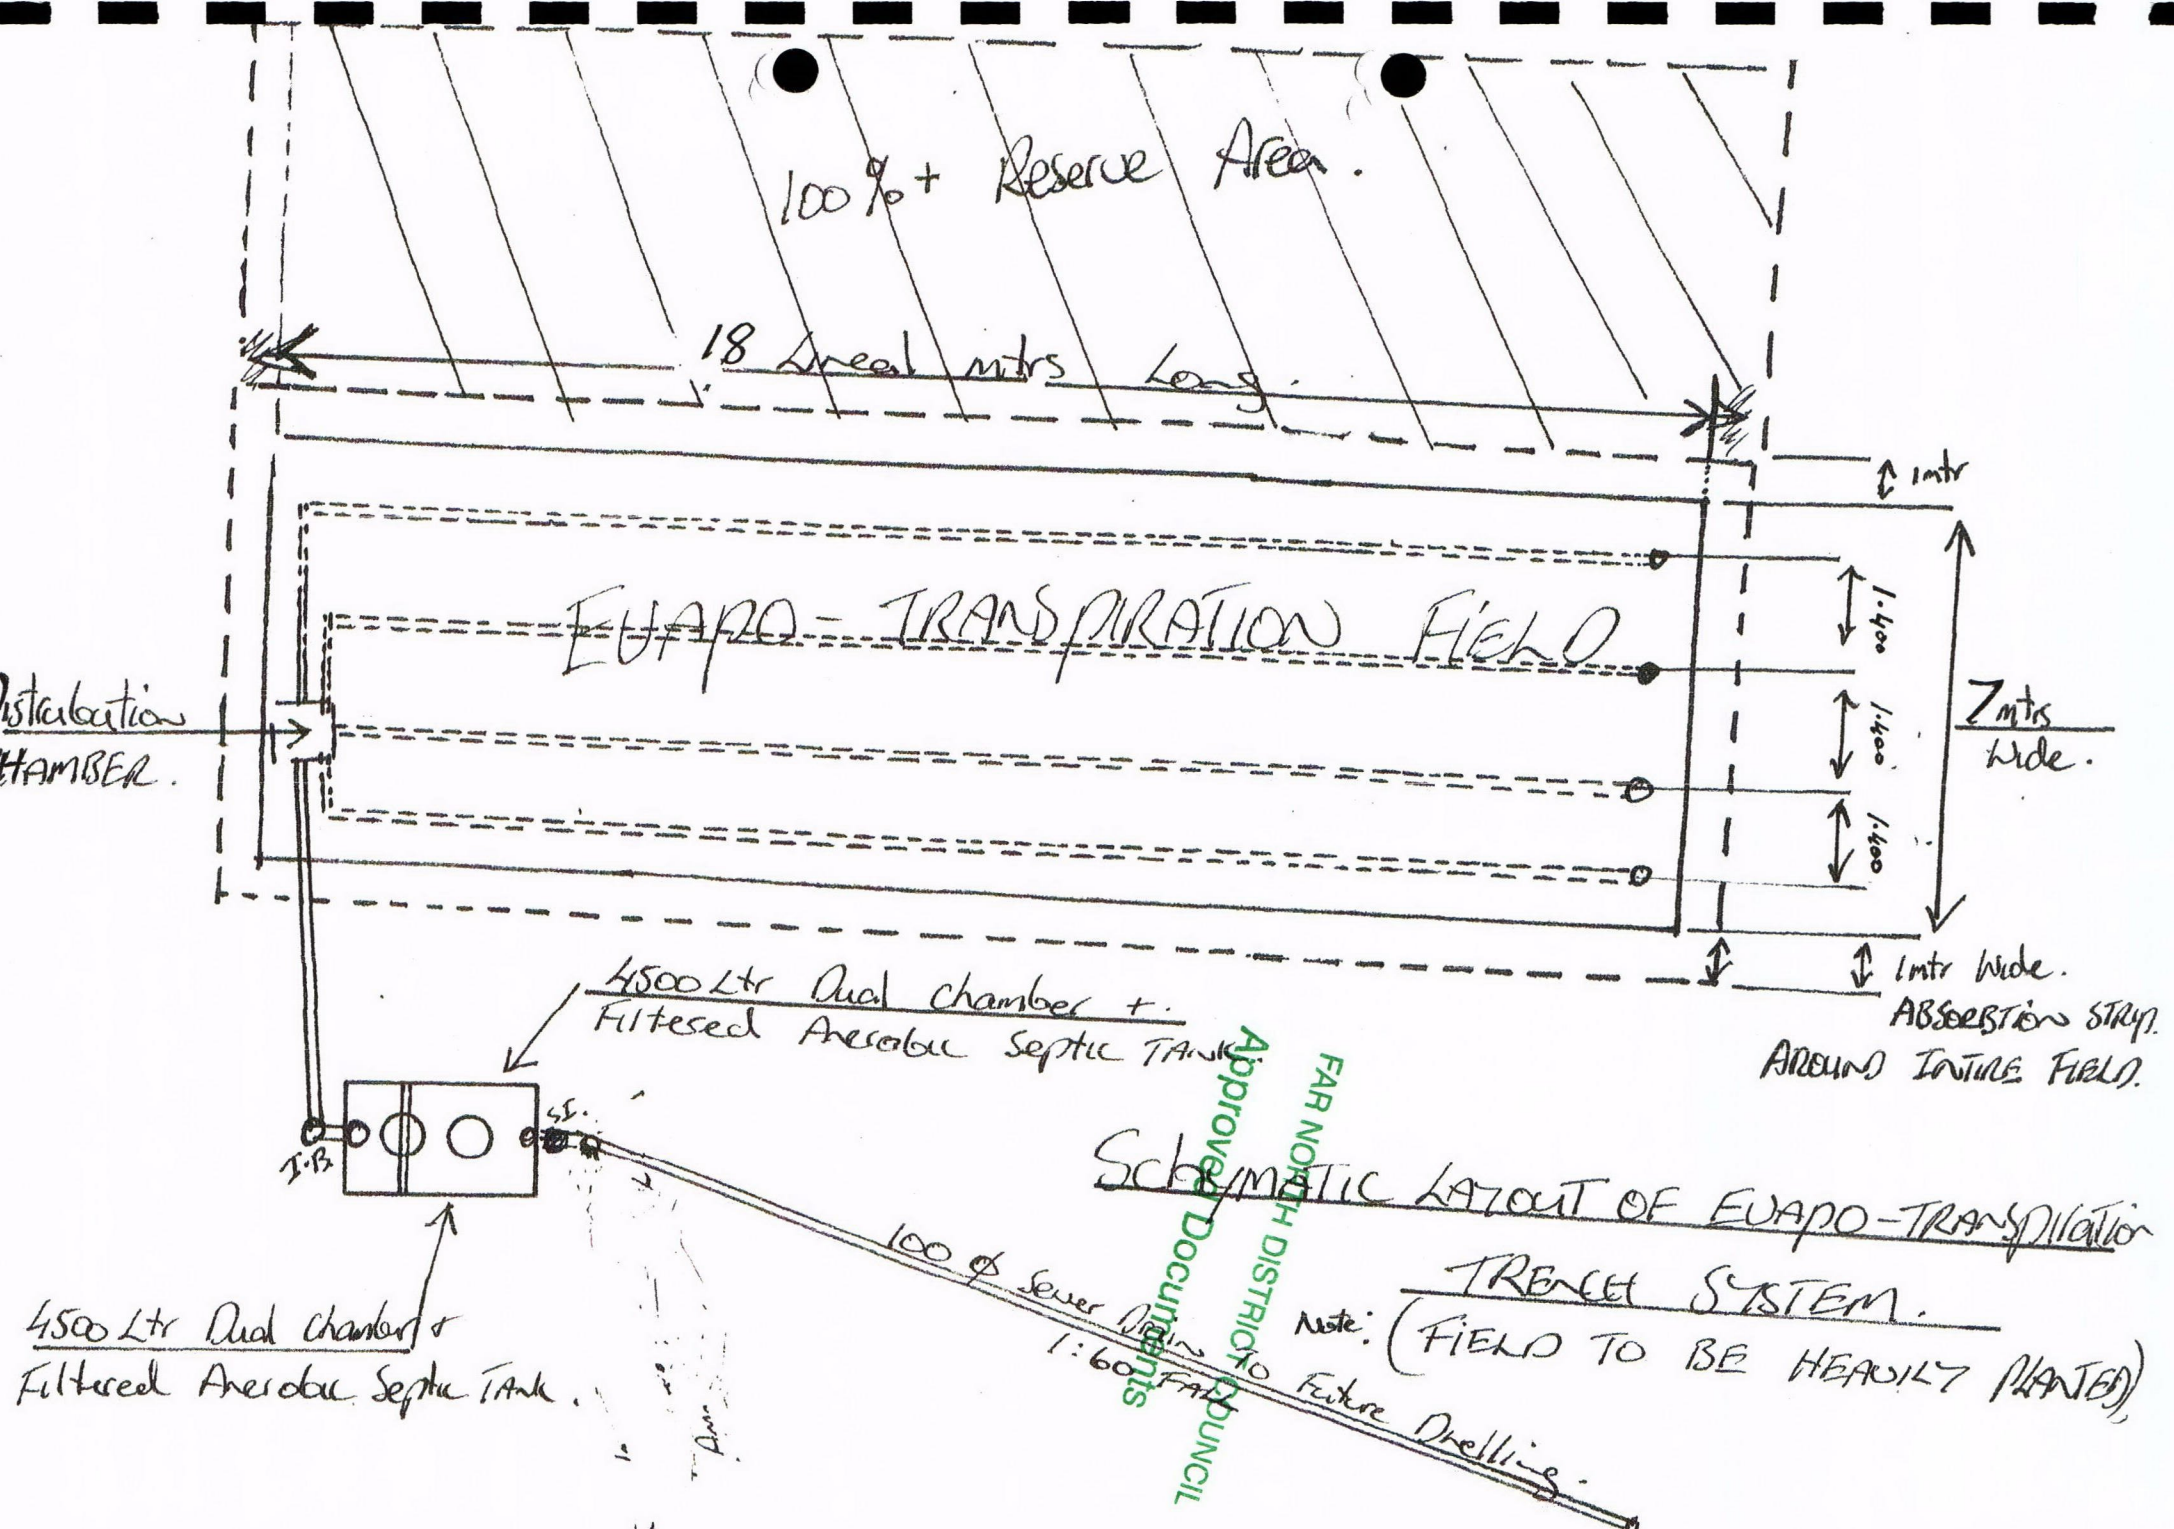 100%+ Reserve Area.
18 Lineal mtrs Long.
1mtr
EVAPO-TRANSPIRATION FIELD
1.400
1.400
1.400
7mtrs
Wide.
Distribution
CHAMBER.
1mtr Wide.
ABSORBTION STRIP.
AROUND INTIRE FIELD.
4500 Ltr Dual Chamber +
Filtered Anerobic Septic TANK.
S.I.
I.B.
FAR NORTH DISTRICT COUNCIL
Approved Documents
SCHYMATIC LAYOUT OF EVAPO-TRANSPIRATION
TRENCH SYSTEM.
Note: (FIELD TO BE HEAVILY PLANTED),
100 Ø Sewer Drain TO Future Dwelling.
1:60 FALL
4500 Ltr Dual Chamber +
Filtered Anerobic Septic TANK.